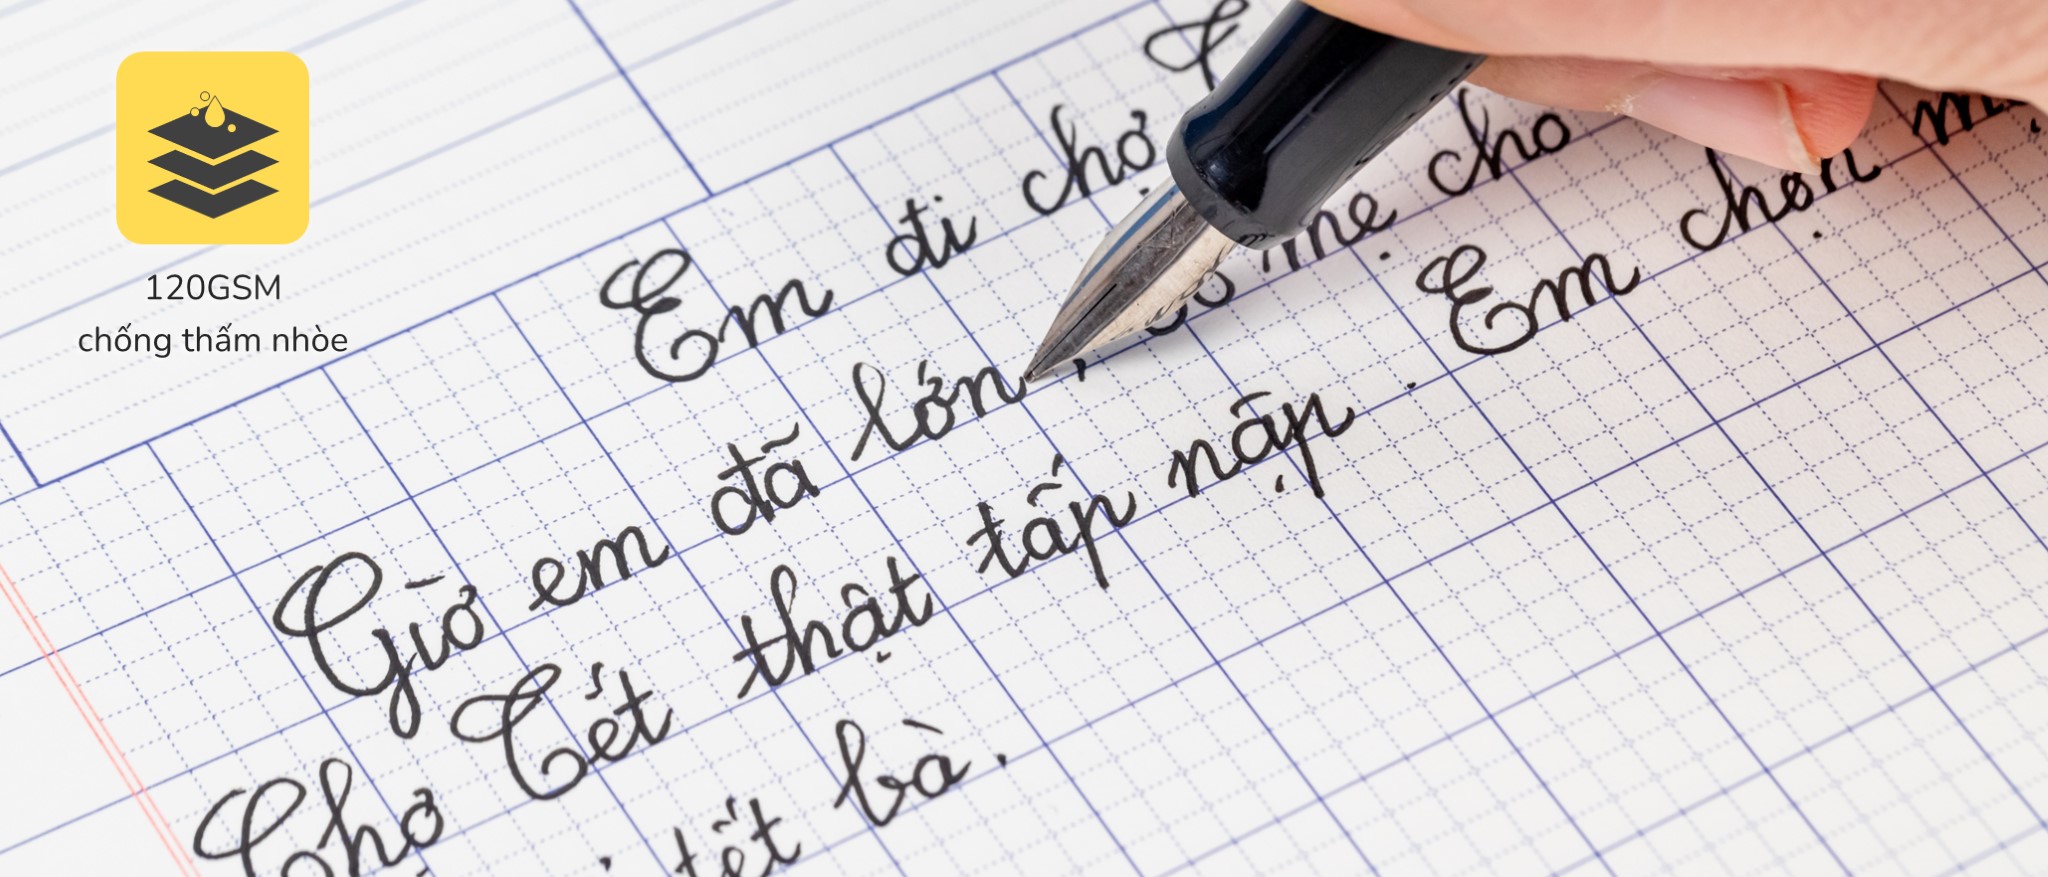 120GSM
chống thấm nhòe
Em đi chợ
Giờ em đã lớn, mẹ cho
Chợ Tết thật tấp nập. Em chọn
tết bà.